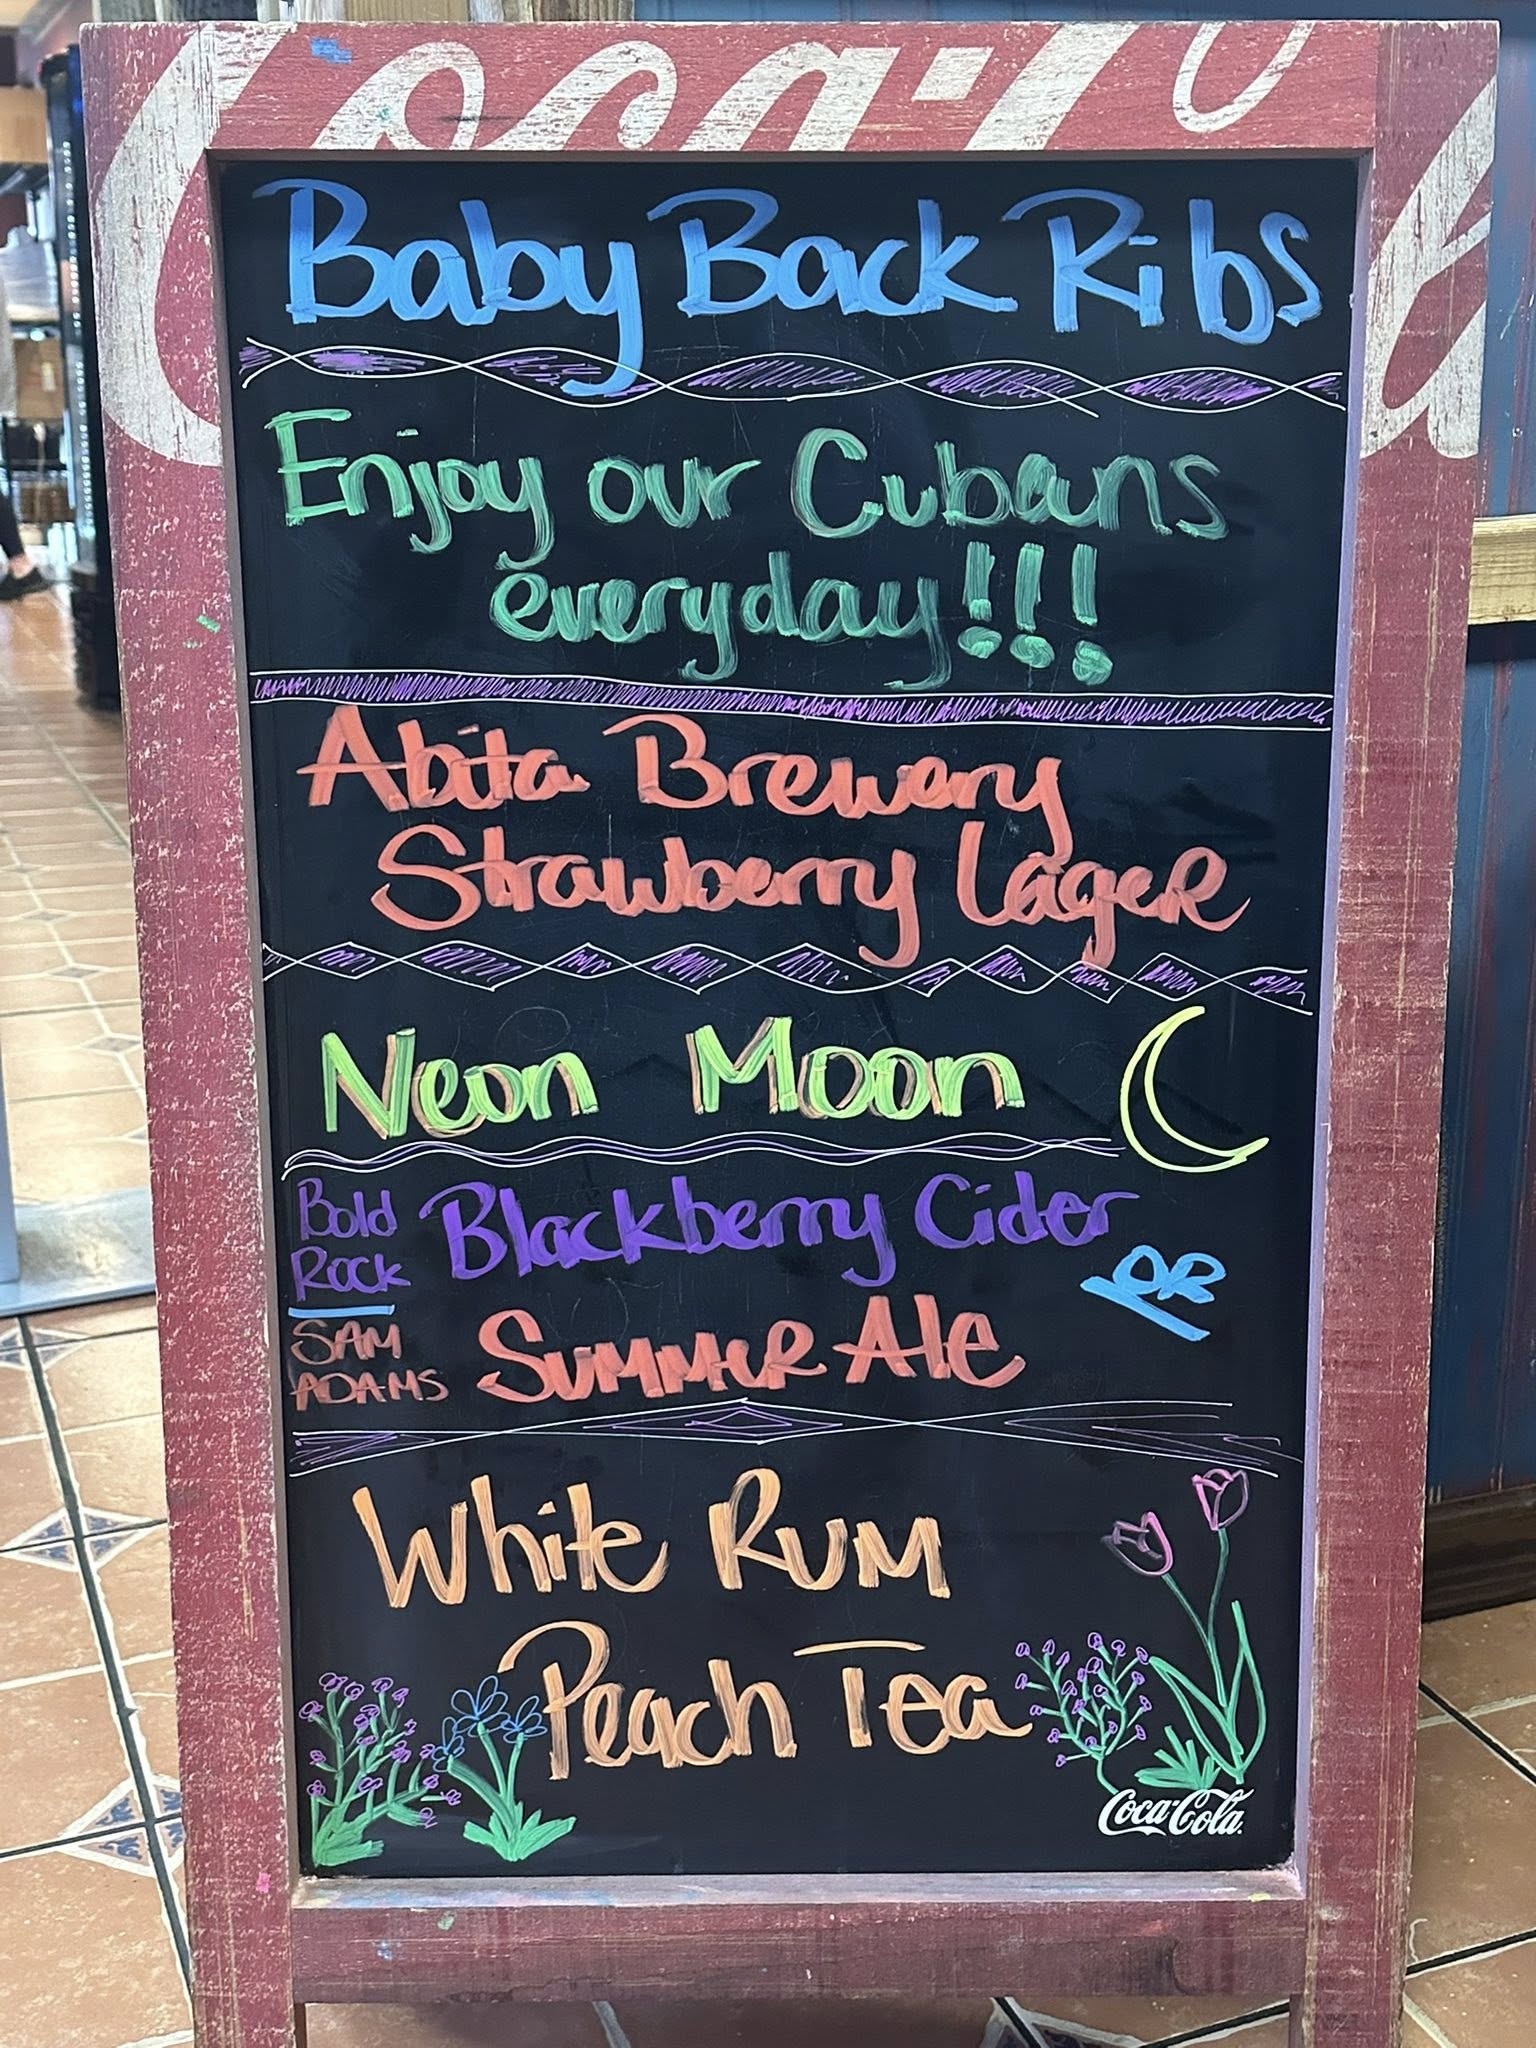 Coca-Cola
Baby Back Ribs
Enjoy our Cubans
everyday!!!
Abita Brewery
Strawberry Lager
Neon Moon
Bold Rock Blackberry Cider
SAM ADAMS SUMMER Ale
White Rum
Peach Tea
Coca-Cola